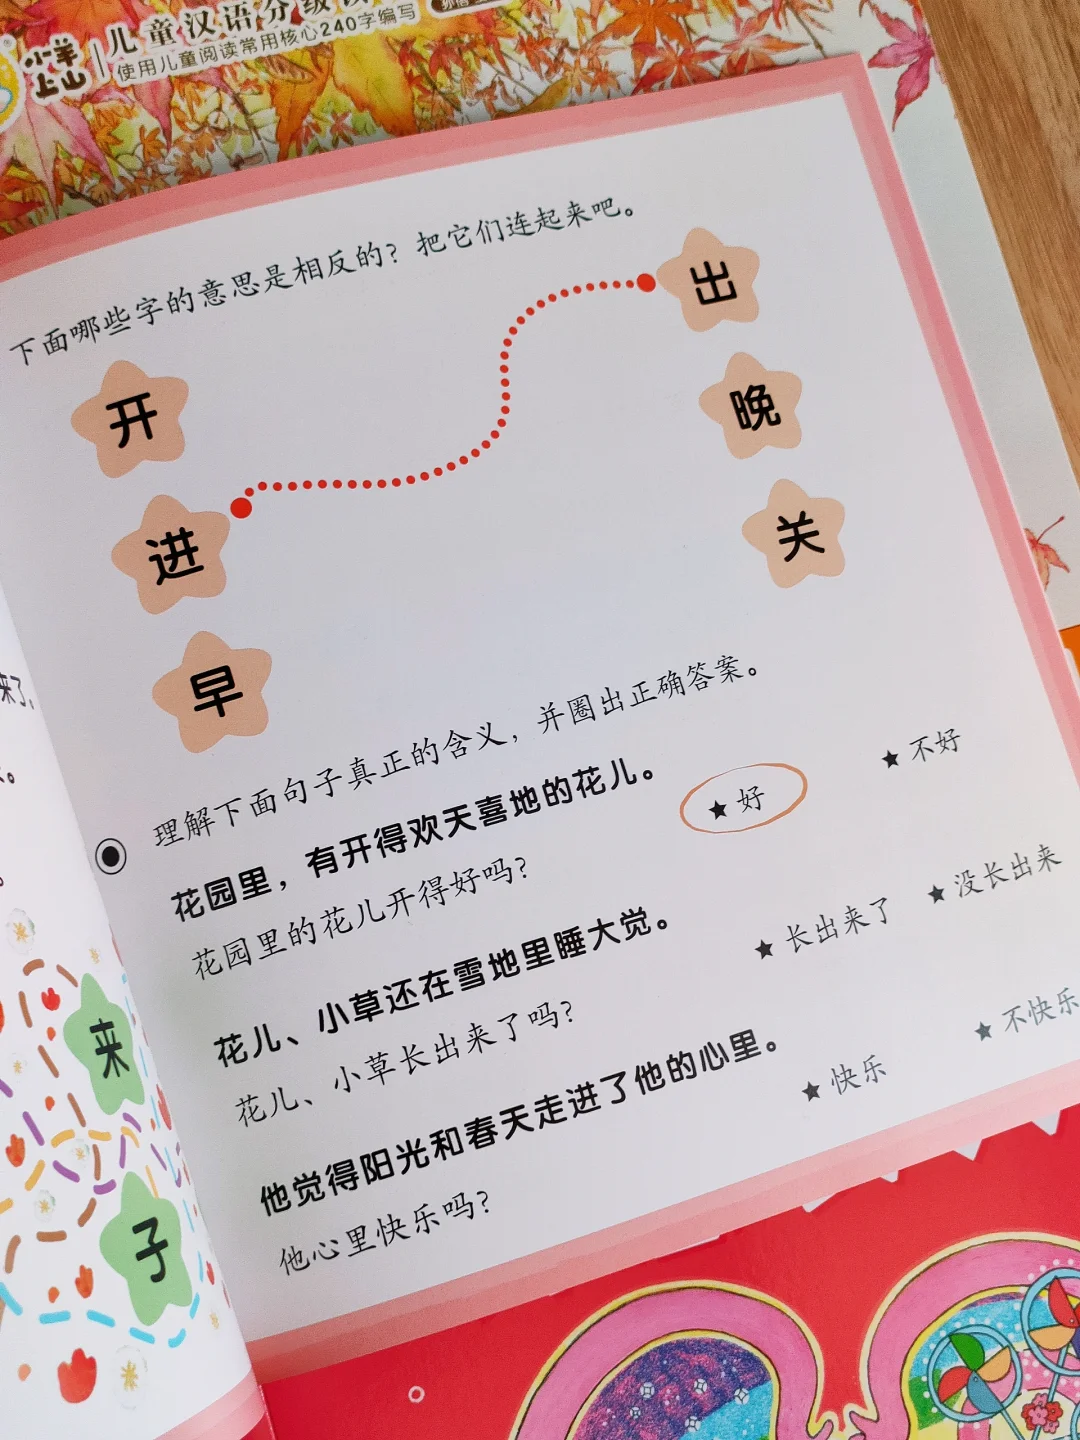 小羊上山
儿童汉语分级读
使用儿童阅读常用核心240字编写
下面哪些字的意思是相反的？把它们连起来吧。
开
进
早
出
晚
关
理解下面句子真正的含义，并圈出正确答案。
花园里，有开得欢天喜地的花儿。
花园里的花儿开得好吗？
★好
★不好
花儿、小草还在雪地里睡大觉。
花儿、小草长出来了吗？
★长出来了
★没长出来
他觉得阳光和春天走进了他的心里。
他心里快乐吗？
★快乐
★不快乐
来了。
来
子